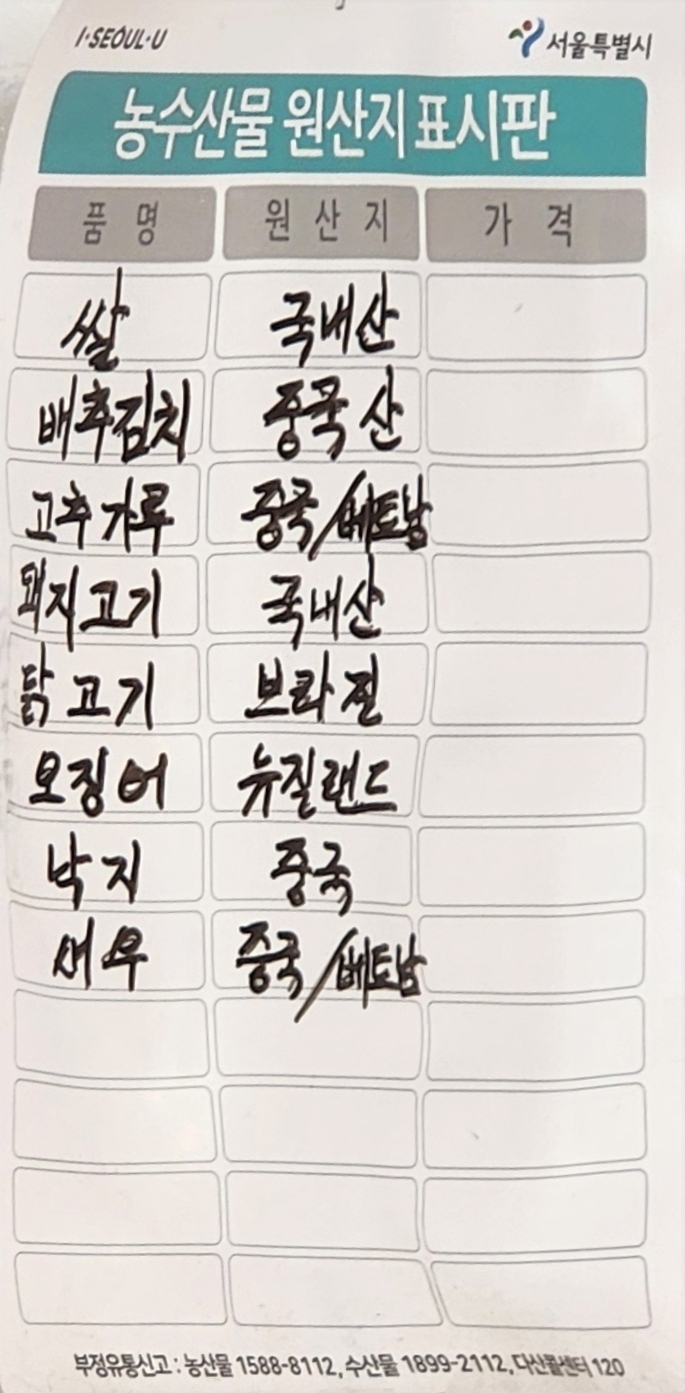 I·SEOUL·U 서울특별시
농수산물 원산지 표시판
품명 원산지 가격
쌀 국내산
배추김치 중국산
고추가루 중국/베트남
돼지고기 국내산
닭고기 브라질
오징어 뉴질랜드
낙지 중국
새우 중국/베트남
부정유통신고 : 농산물 1588-8112, 수산물 1899-2112, 다산콜센터 120